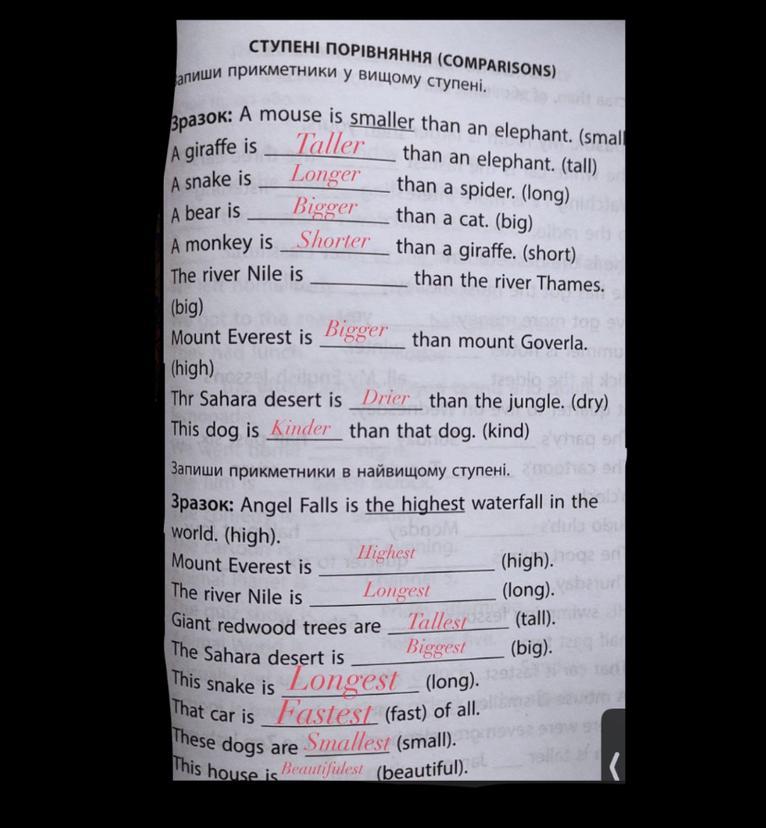 СТУПЕНІ ПОРІВНЯННЯ (COMPARISONS)
апиши прикметники у вищому ступені.
Зразок: A mouse is smaller than an elephant. (smal
A giraffe is Taller than an elephant. (tall)
A snake is Longer than a spider. (long)
A bear is Bigger than a cat. (big)
A monkey is Shorter than a giraffe. (short)
The river Nile is ________ than the river Thames.
(big)
Mount Everest is Bigger than mount Goverla.
(high)
Thr Sahara desert is Drier than the jungle. (dry)
This dog is Kinder than that dog. (kind)
Запиши прикметники в найвищому ступені.
Зразок: Angel Falls is the highest waterfall in the
world. (high).
Mount Everest is Highest (high).
The river Nile is Longest (long).
Giant redwood trees are Tallest (tall).
The Sahara desert is Biggest (big).
This snake is Longest (long).
That car is Fastest (fast) of all.
These dogs are Smallest (small).
This house is Beautifulest (beautiful).